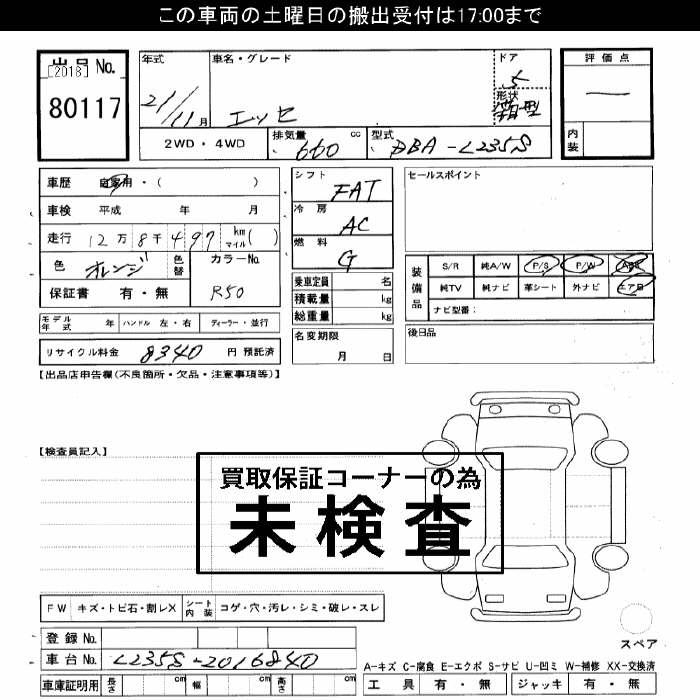 この車両の土曜日の搬出受付は17:00まで
出品 No. [2018] 80117
年式 21/11月
車名・グレード エッセ
ドア 5
形状 箱型
評価点 —
内装
2WD・4WD
排気量 660 cc
型式 DBA-L235S
車歴 自家用・( )
車検 平成 年 月
走行 12万8千497 km マイル ( )
色 オレンジ 色替
カラーNo. R50
保証書 有・無
シフト FAT
冷房 AC
燃料 G
乗車定員 名
積載量 kg
総重量 kg
セールスポイント
装備品 S/R 純A/W P/S P/W ABS
純TV 純ナビ 革シート 外ナビ エアB
ナビ型番:
モデル年式 年 ハンドル 左・右 ディーラー・並行
名変期限 月 日
後日品
リサイクル料金 8340 円 預託済
【出品店申告欄(不良箇所・欠品・注意事項等)】
【検査員記入】
買取保証コーナーの為
未検査
FW キズ・トビ石・割レX シート内装 コゲ・穴・汚レ・シミ・破レ・スレ
スペア
登録 No.
車台 No. L235S-2016840
車庫証明用 長さ cm 幅 cm 高さ cm
A-キズ C-腐食 E-エクボ S-サビ U-凹ミ W-補修 XX-交換済
工具 有・無 ジャッキ 有・無